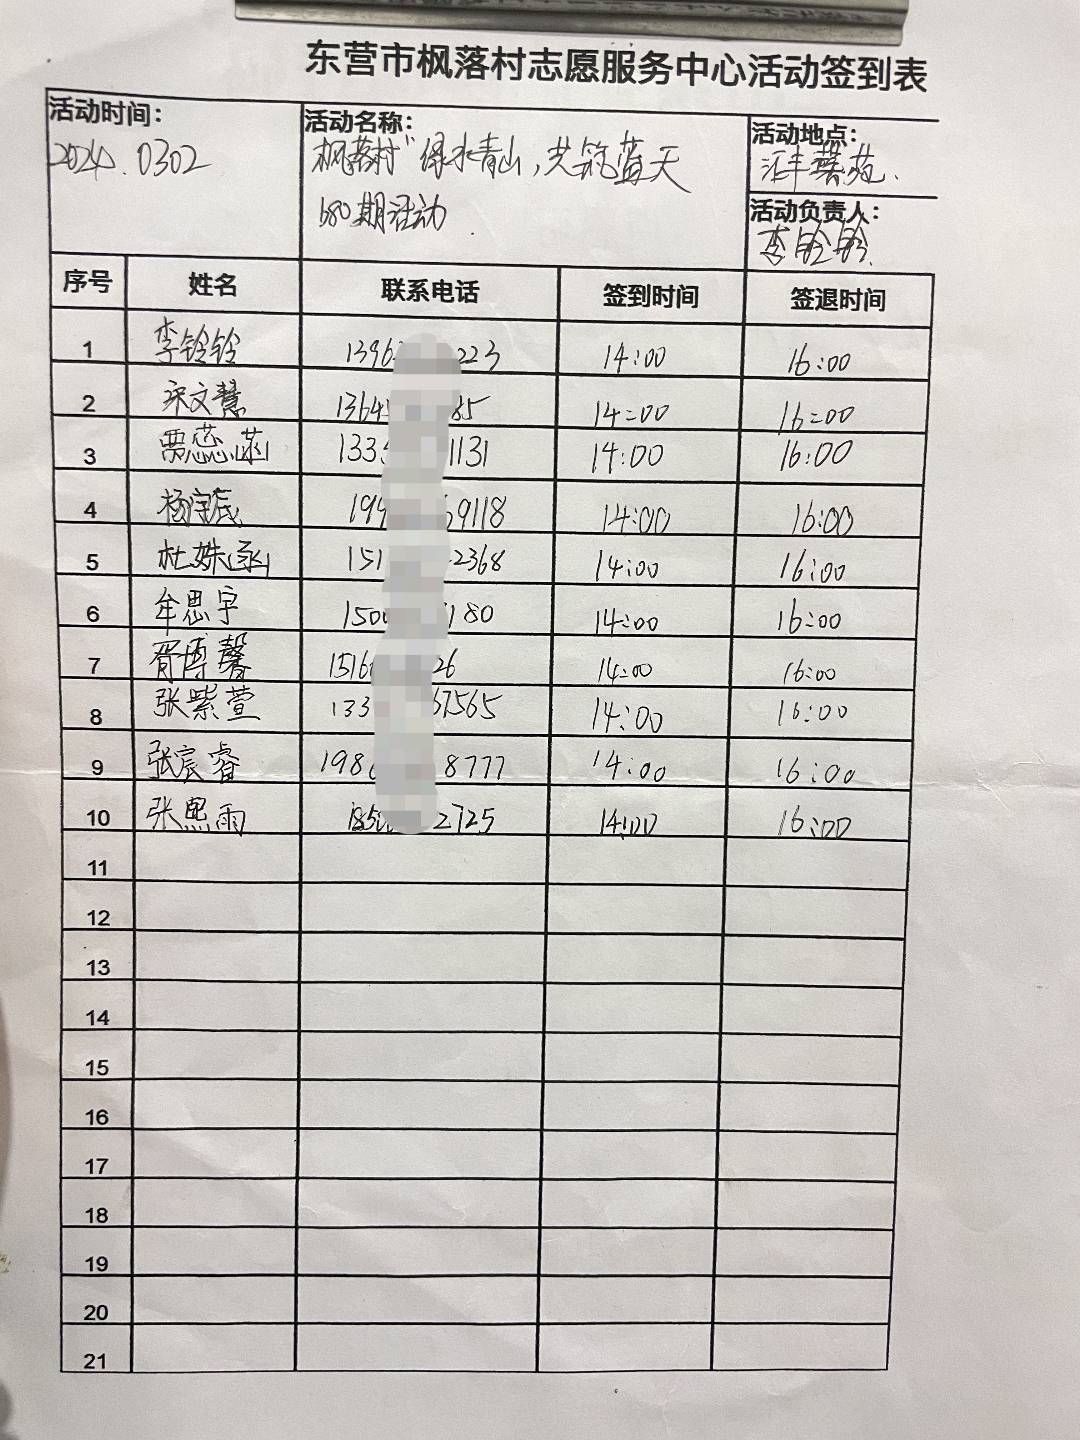 东营市枫落村志愿服务中心活动签到表
活动时间：
2024.0302
活动名称：
枫落村"绿水青山,共筑蓝天
680期活动
活动地点：
汇丰馨苑.
活动负责人：
李铃铃
序号 姓名 联系电话 签到时间 签退时间
1 李铃铃 1396 223 14:00 16:00
2 宋文慧 1364 85 14:00 16:00
3 贾蕊 133 1131 14:00 16:00
4 杨宇辰 199 69118 14:00 16:00
5 杜姝函 151 2368 14:00 16:00
6 牟思宇 1500 180 14:00 16:00
7 胥博馨 1516 26 14:00 16:00
8 张紫萱 133 67565 14:00 16:00
9 张宸睿 198 8777 14:00 16:00
10 张熙雨 150 2725 14:00 16:00
11
12
13
14
15
16
17
18
19
20
21